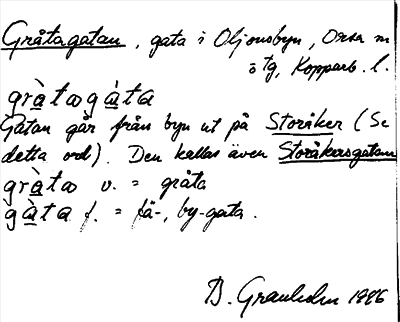 Gråtagatan, gata i Oljonsbyn, Orsa m
ö tg, Kopparb. l.
gràtaogàta
Gatan går från byn ut på Storåker (Se
detta ord). Den kallas även Storåkersgatan
gràtao v. = gråta
gàta f. = fä-, by-gata.
B. Granholm 1986